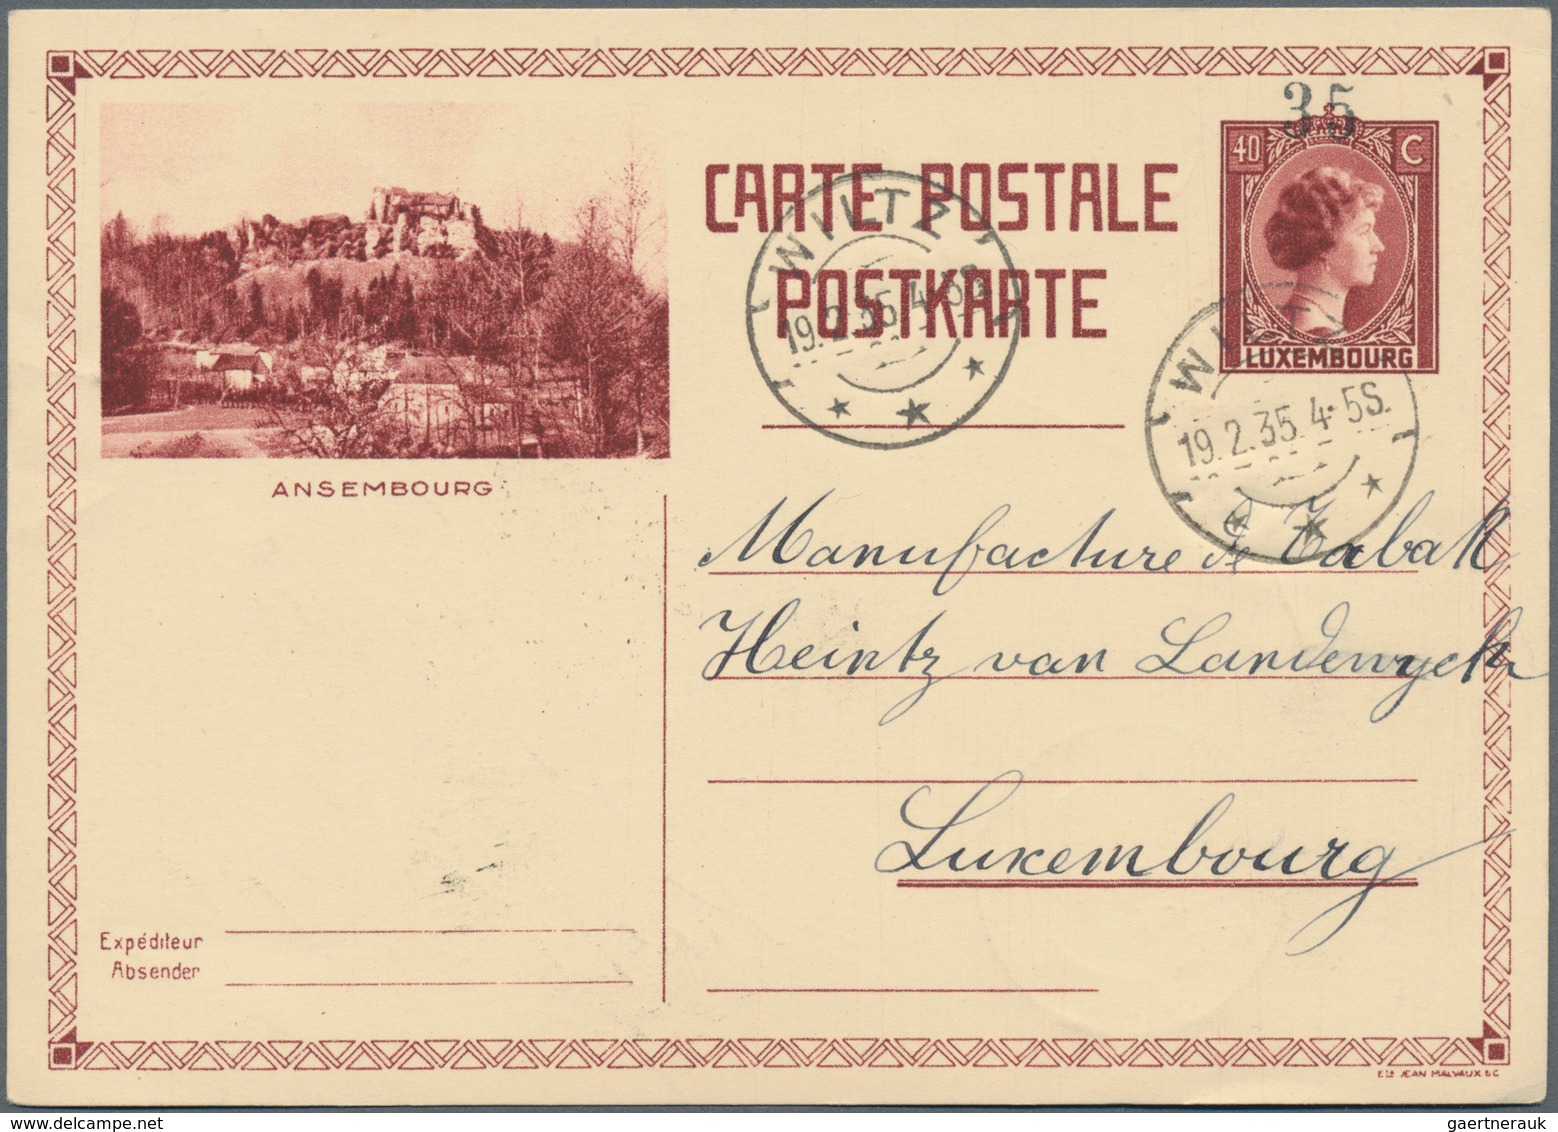 35
40 C
LUXEMBOURG
CARTE POSTALE
POSTKARTE
WILTZ
19.2.35.4-5S.
WILTZ
19.2.35.4-5S.
ANSEMBOURG
Manufacture de Tabak
Heintz van Landewyck
Luxembourg
Expéditeur
Absender
Ets JEAN MALVAUX S.C
gaertnerauk @ delcampe.net